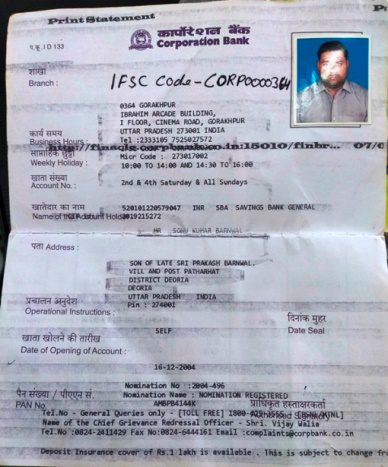 Print Statement
प.क्र. I D 133
कार्पोरेशन बैंक
Corporation Bank
शाखा
Branch :
IFSC Code - CORP0000364
0364 GORAKHPUR
IBRAHIM ARCADE BUILDING,
I FLOOR, CINEMA ROAD, GORAKHPUR
कार्य समय
UTTAR PRADESH 273001 INDIA
Business Hours :
Tel :2333105 7525027572
साप्ताहिक छुट्टी
15010/finbr... 07/0
Weekly Holiday :
Micr Code : 273017002
10:00 TO 14:00 AND 14:30 TO 16:00
खाता संख्या
Account No. :
2nd & 4th Saturday & All Sundays
खातेदार का नाम
520101220579047 INR SBA SAVINGS BANK GENERAL
Name of the Account Holder
MR SONU KUMAR BARNWAL
पता Address :
SON OF LATE SRI PRAKASH BARNWAL.
VILL AND POST PATHARHAT
DISTRICT DEORIA
DEORIA
प्रचालन अनुदेश
UTTAR PRADESH INDIA
Operational Instructions :
Pin : 274001
दिनांक मुहर
Date Seal
SELF
खाता खोलने की तारीख
Date of Opening of Account :
16-12-2004
Nomination No :2004-496
पैन संख्या / पीएएन सं.
Nomination Name : NOMINATION REGISTERED
प्राधिकृत हस्ताक्षरकर्ता
PAN No.
AMBPB4144K
Authorised Signatory
Tel.No - General Queries only - [TOLL FREE]
Name of the Chief Grievance Redressal Officer - Shri. Vijay Walia
Tel.No :0824-2411429 Fax No:0824-6444161 Email :complaints@corpbank.co.in
Deposit Insurance cover of Rs.1 lakh is available . This is subject to change fr